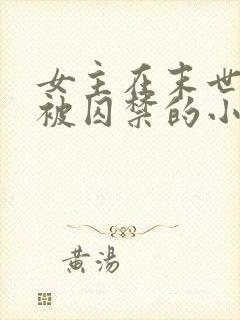 女主在末世
被囚禁的小
黄湯